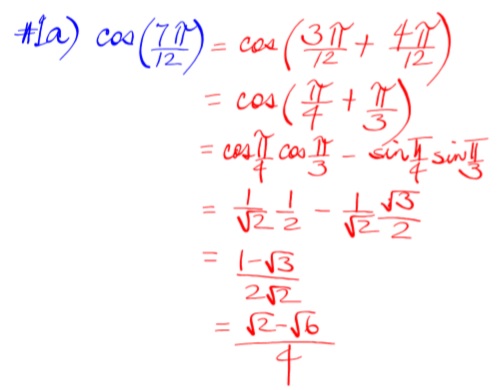 #1a) cos(7π/12) = cos(3π/12 + 4π/12)
= cos(π/4 + π/3)
= cos π/4 cos π/3 − sin π/4 sin π/3
= 1/√2 1/2 − 1/√2 √3/2
= 1−√3/2√2
= √2−√6/4